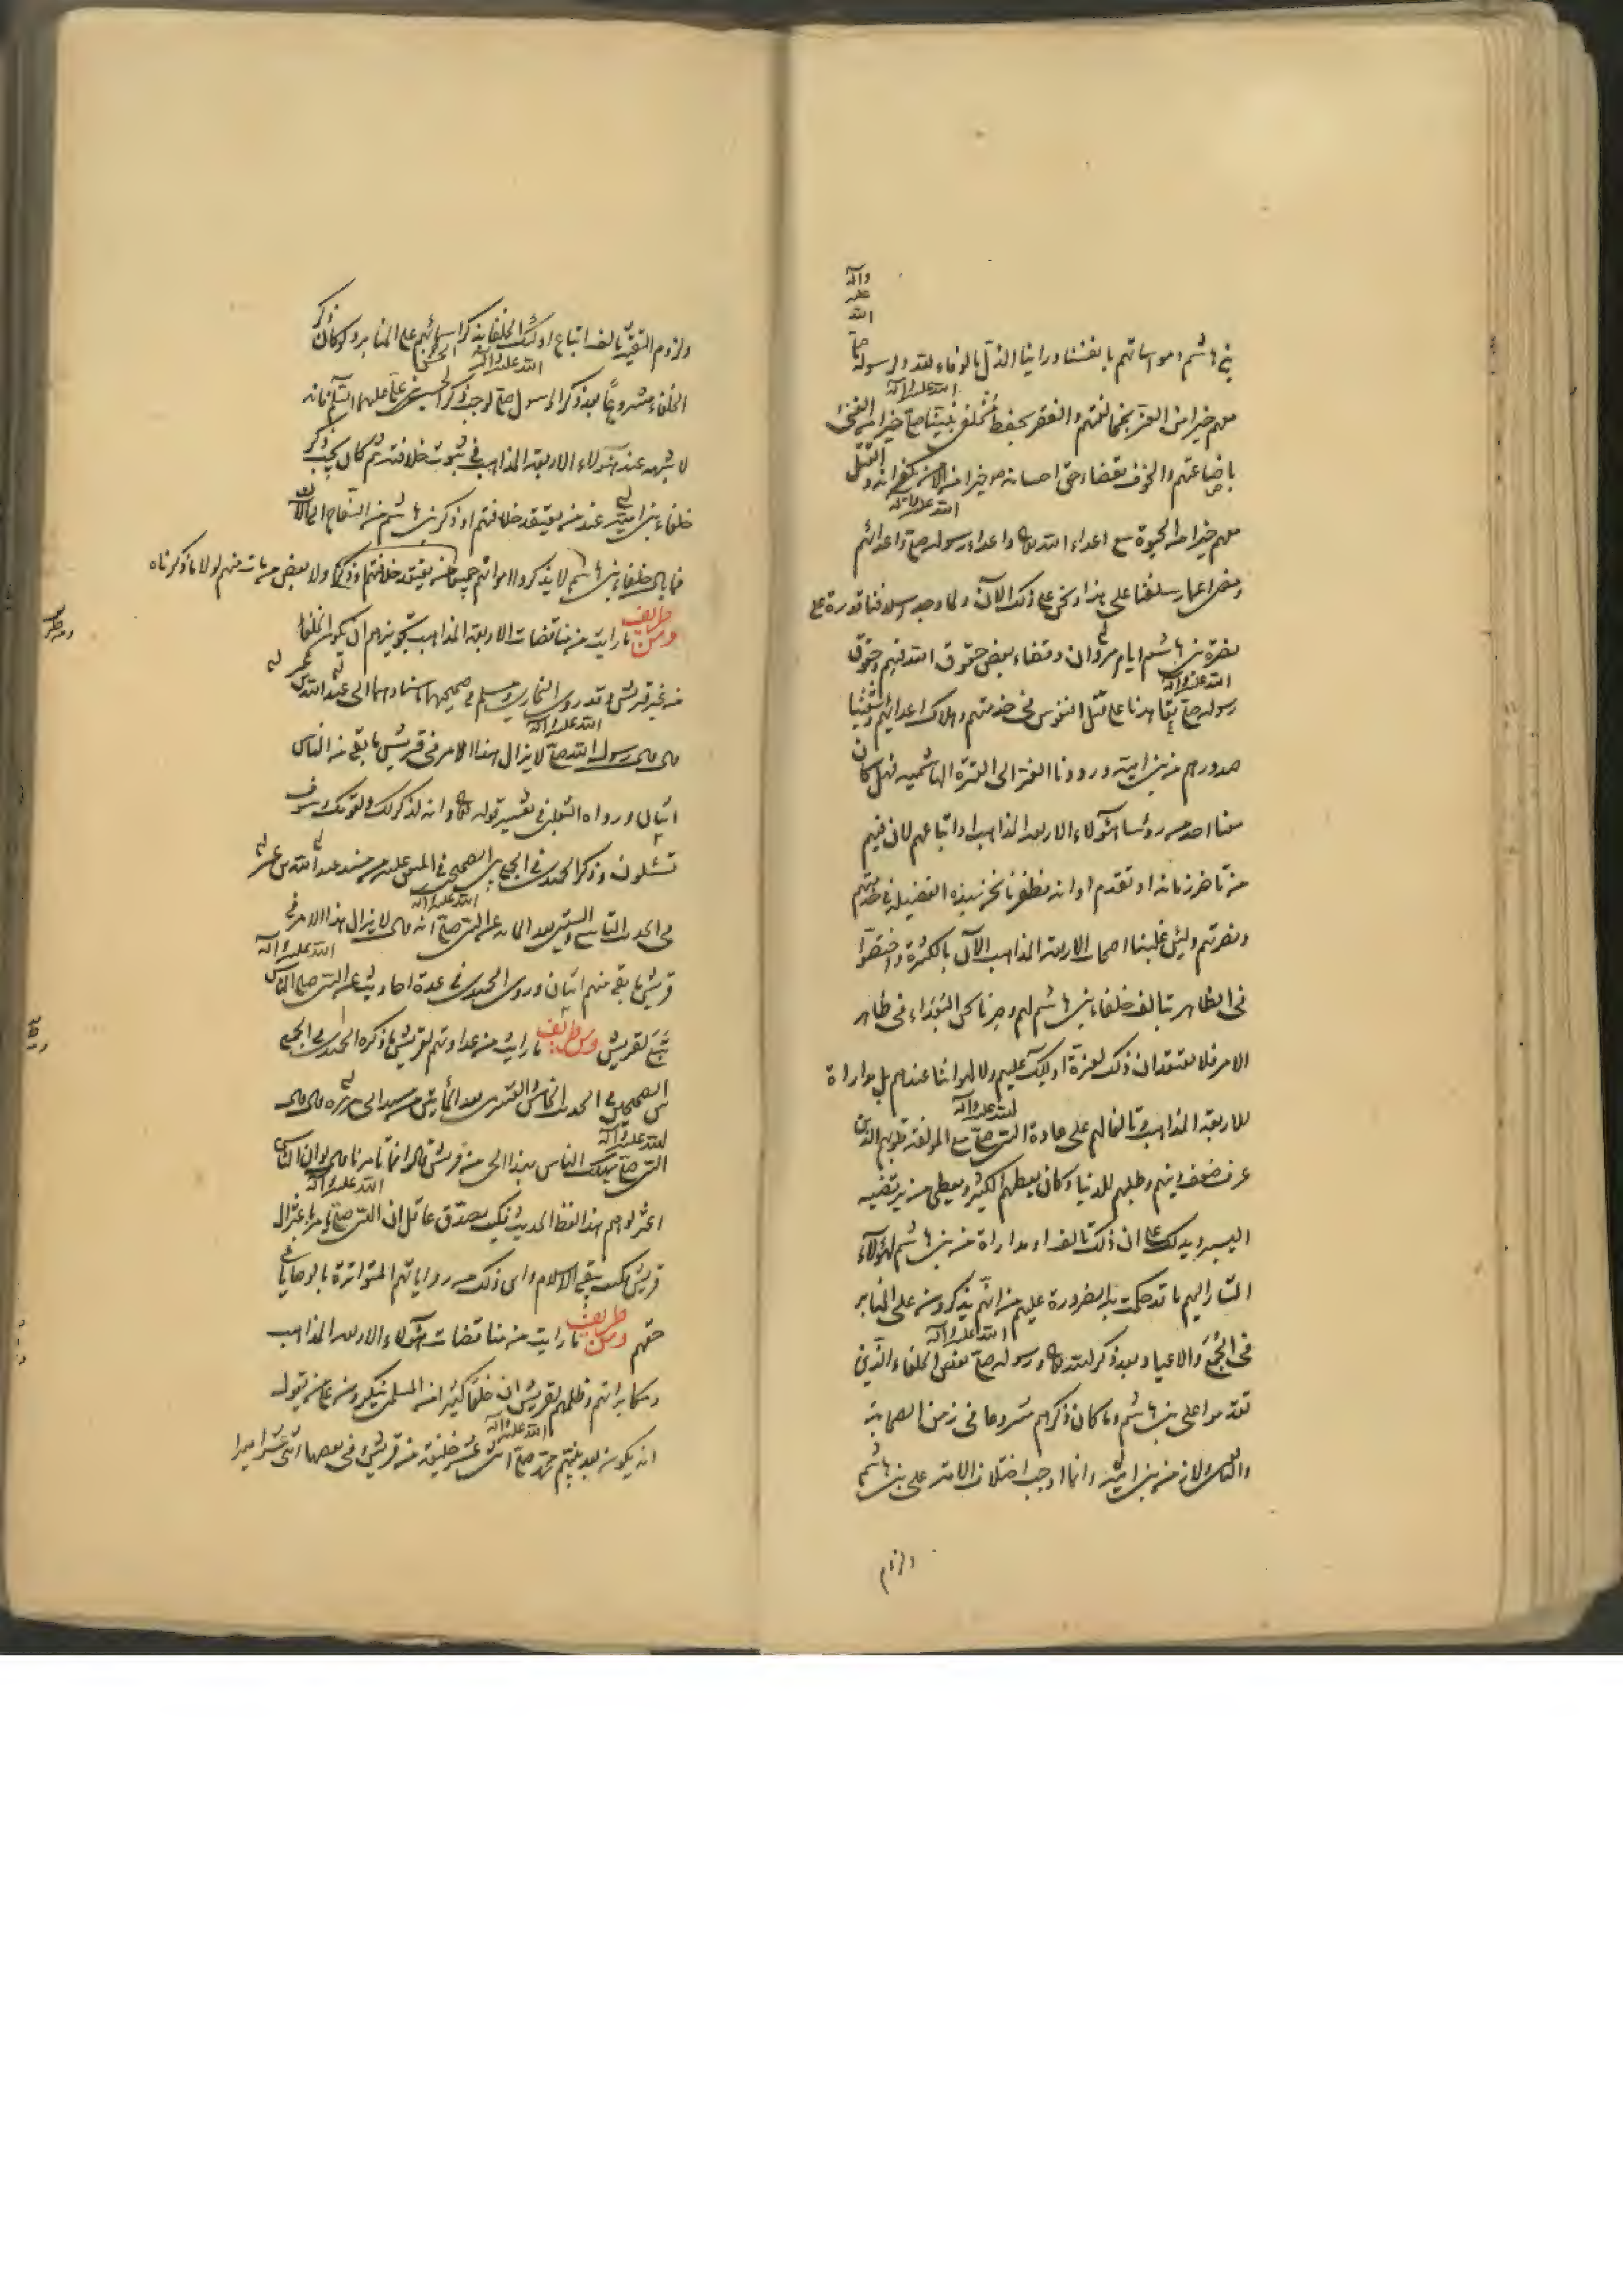 بني هاشم ومواساتهم بانفسنا وراينا الذل بالوفاء لله ولرسوله صلى الله عليه واله
معهم خيرا من العز بمخالفتهم والفقر بحفظ مخلفي نبينا صلى الله عليه واله خيرا من الغنى
باضاعتهم والخوف بقضاء حق احسانه خيرا من الامن بكفرانه والقتل
معهم خيرا من الحيوة مع اعداء الله تعالى واعداء رسوله صلى الله عليه واله واعدائهم
ومضى اعمار سلفنا على هذا ونحن على ذلك الآن ولما وجد اسلافنا قدرة على
نصرة بني هاشم ايام مروان وقضاء بعض حقوق الله فيهم وحقوق
رسوله صلى الله عليه واله تعاهدنا على قتل النفوس في خدمتهم وهلاك اعدائهم وشفينا
صدورهم من بني امية ورددنا العز الى العترة الهاشمية فهل كان
معنا احد من رؤساء هؤلاء الاربعة المذاهب او اتباعهم لان فيهم
من تاخر زمانه او تقدم اوانه فظفرنا نحن بهذه الفضيلة في خدمتهم
ونصرتهم ولئن غلبنا اصحاب الاربعة المذاهب الآن بالكثرة واختصوا
في الظاهر بتالف خلفاء بني هاشم لهم وصرنا نحن البعداء في ظاهر
الامر فلا نعتقد ان ذلك لعزة اولئك عليهم ولا لهواننا عندهم بل مداراة
للاربعة المذاهب وتالفا لهم على عادة النبي صلى الله عليه واله مع المؤلفة قلوبهم الذين
عرف ضعف دينهم وطلبهم للدنيا وكان يعطيهم الكثير ويعطي من يرتضيه
اليسير ويدلك على ان ذلك تالف او مداراة من بني هاشم لهؤلآء
المشار اليهم ما قد حكمت به الضرورة عليهم من انهم يذكرون على المنابر
في الجمع والاعياد بعد ذكر الله تعالى ورسوله صلى الله عليه واله بعض الخلفاء الذين
تقدموا على بني هاشم وما كان ذكرهم مشروعا في زمن الصحابة
والتابعين ولا زمن بني امية وانما اوجب اختلاف الامة على بني هاشم
ولزوم
ولزوم التقية تالف اتباع اولئك الخلفاء بذكر اسمائهم على المنابر ولو كان ذكر
الخلفاء مشروعا بعد ذكر الرسول صلى الله عليه واله لوجب ذكر الحسن بن علي عليهما السلم فانه
لا شبهه عند هؤلاء الاربعة المذاهب في ثبوت خلافته ثم كان يجب ذكر
خلفاء بني امية عند من يعتقد خلافتهم او ذكر بني هاشم من السفاح الى الآن
فما بال خلفاء بني هاشم لا يذكرون امواتهم جميعا من يعتقد خلافتهم وذكرها ولا بعض من مات منهم لولا ما ذكرناه
ومن طرايف ما رايت من مناقضات الاربعة المذاهب تجويزهم ان يكون الخلفاء
من غير قريش وقد روى البخاري ومسلم في صحيحهما باسنادهما الى عبد الله بن عمر
قال قال رسول الله صلى الله عليه واله لا يزال هذا الامر في قريش ما بقي من الناس
اثنان ورواه الثعلبي في تفسير قوله تعالى وانه لذكر لك ولقومك وسوف
تسئلون وذكر الحميدي في الجمع بين الصحيحين في المتفق عليه من مسند عبد الله بن عمر
في الحديث التاسع والستين بعد المائة عن النبي صلى الله عليه واله انه قال لا يزال هذا الامر في
قريش ما بقي منهم اثنان وروى الحميدي في عدة احاديث عن النبي صلى الله عليه واله الناس
تبع لقريش ومن طرايف ما رايت من عداوتهم لقريش ما ذكره الحميدي في الجمع
بين الصحيحين في الحديث الخامس والعشرين بعد المأتين من مسند ابي هريرة قال قال
النبي صلى الله عليه واله يهلك الناس هذا الحي من قريش قالوا فما تامرنا قال لو ان الناس
اعتزلوهم هذا لفظ الحديث فكيف يصدق عاقل ان النبي صلى الله عليه واله يامر باعتزال
قريش فكيف بقي الاسلام واى ذلك من رواياتهم المتواترة بالوصايا في
حقهم ومن طرايف ما رايت من مناقضات هؤلاء الاربعة المذاهب
ومكابراتهم وظلمهم لقريش ان خلقا كثيرا من المسلمين ينكرون على من يقول
انه يكون بعد نبيهم محمد صلى الله عليه واله اثنى عشر خليفة من قريش وفي بعضها اثنى عشر اميرا